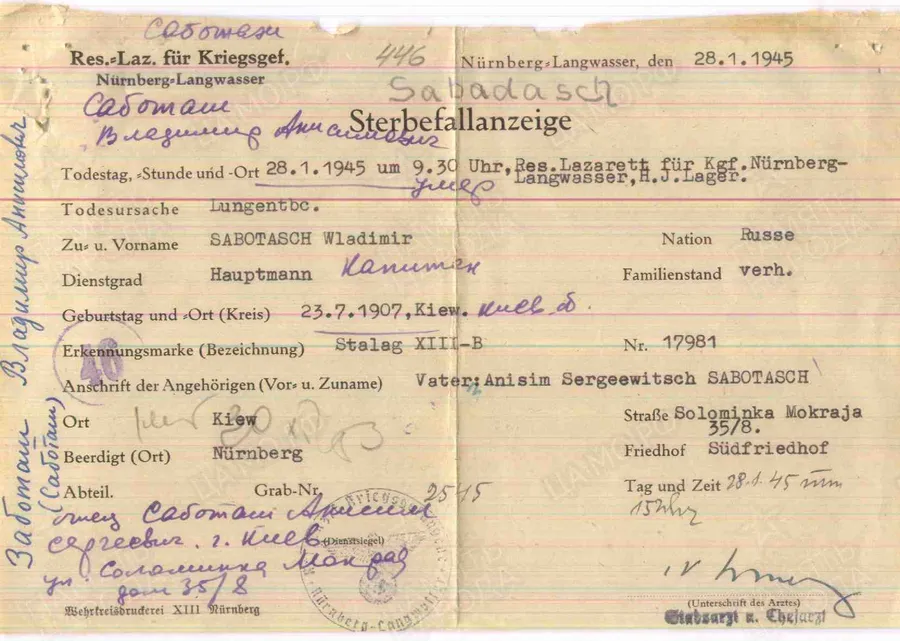 Саботаж
Res.-Laz. für Kriegsgef.
Nürnberg-Langwasser
446
Nürnberg-Langwasser, den 28.1.1945
Sabadasch
Саботаш
Владимир Анисимович
Sterbefallanzeige
Todestag, -Stunde und -Ort 28.1.1945 um 9.30 Uhr, Res.Lazarett für Kgf.Nürnberg-
Langwasser, H.J.Lager.
умер
Todesursache Lungentbc.
Zu- u. Vorname SABOTASCH Wladimir
Nation Russe
Dienstgrad Hauptmann Капитан
Familienstand verh.
Geburtstag und -Ort (Kreis) 23.7.1907, Kiew. Киев об.
Erkennungsmarke (Bezeichnung) Stalag XIII-B
Nr. 17981
46
Anschrift der Angehörigen (Vor- u. Zuname) Vater: Anisim Sergeewitsch SABOTASCH
Ort Kiew
Straße Solominka Mokraja
35/8.
Beerdigt (Ort) Nürnberg
Friedhof Südfriedhof
Abteil. Grab-Nr. 2545
Tag und Zeit 28.1.45 um
15 Uhr
отец Саботаш Анисим
Сергеевич г. Киев
(Dienstsiegel)
ул. Соломинка Мокрая
дом 35/8
(Unterschrift des Arztes)
Stabsarzt u. Chefarzt
Wehrkreisdruckerei XIII Nürnberg
Заботаш Владимир Анисимович
(Саботаш)